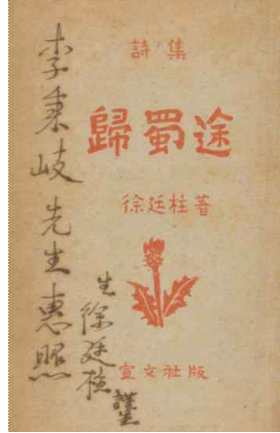 詩集
歸蜀途
徐廷柱著
宣文社版
李秉岐先生惠照
生徐廷柱謹呈